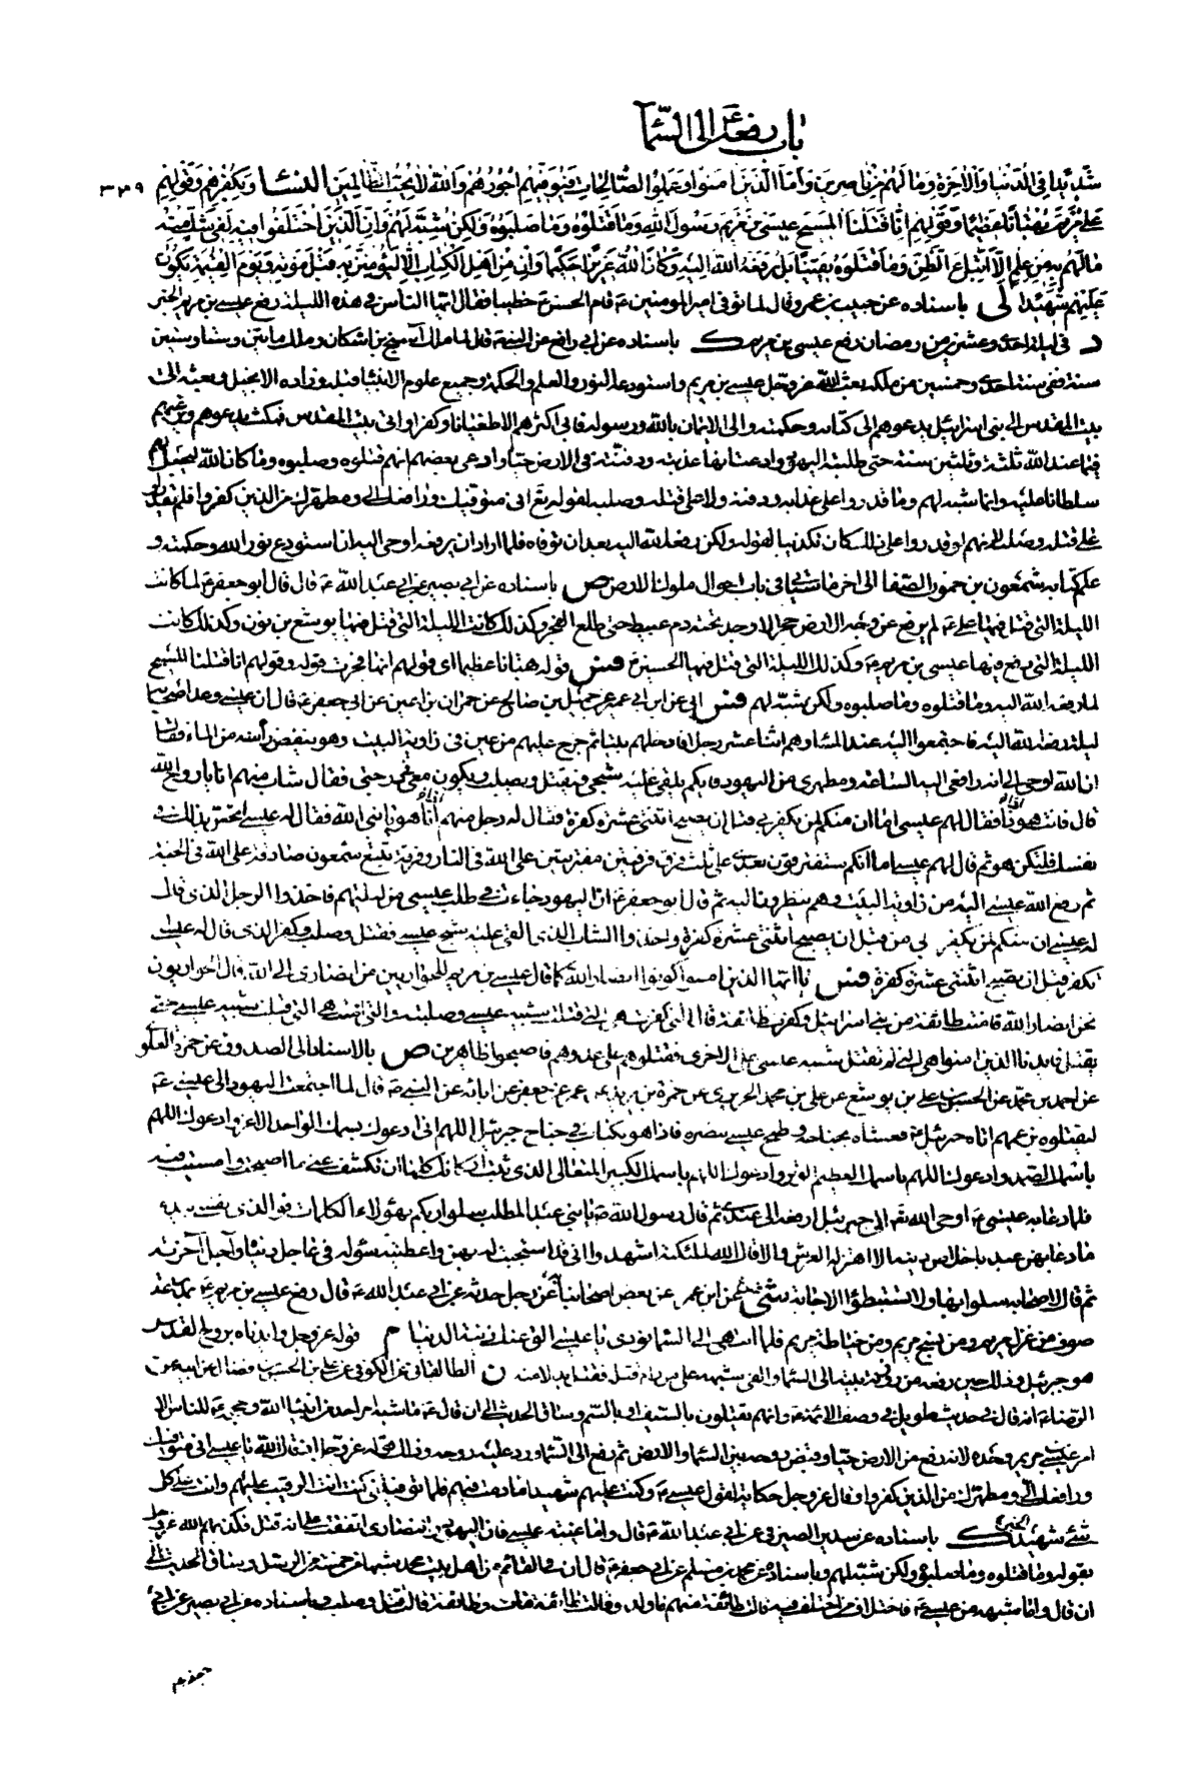 باب رفعه ع الى السّمآء
شَدِيدًا فِي الدُّنْيَا وَالْآخِرَةِ وَمَا لَهُمْ مِنْ نَاصِرِينَ وَأَمَّا الَّذِينَ آمَنُوا وَعَمِلُوا الصَّالِحَاتِ فَيُوَفِّيهِمْ أُجُورَهُمْ وَاللَّهُ لَا يُحِبُّ الظَّالِمِينَ النساء وَبِكُفْرِهِمْ وَقَوْلِهِمْ ٣٣٩
عَلَى مَرْيَمَ بُهْتَانًا عَظِيمًا وَقَوْلِهِمْ إِنَّا قَتَلْنَا الْمَسِيحَ عِيسَى بْنَ مَرْيَمَ رَسُولَ اللَّهِ وَمَا قَتَلُوهُ وَمَا صَلَبُوهُ وَلَكِنْ شُبِّهَ لَهُمْ وَإِنَّ الَّذِينَ اخْتَلَفُوا فِيهِ لَفِي شَكٍّ مِنْهُ
مَا لَهُمْ بِهِ مِنْ عِلْمٍ إِلَّا اتِّبَاعَ الظَّنِّ وَمَا قَتَلُوهُ يَقِينًا بَلْ رَفَعَهُ اللَّهُ إِلَيْهِ وَكَانَ اللَّهُ عَزِيزًا حَكِيمًا وَإِنْ مِنْ أَهْلِ الْكِتَابِ إِلَّا لَيُؤْمِنَنَّ بِهِ قَبْلَ مَوْتِهِ وَيَوْمَ الْقِيَامَةِ يَكُونُ
عَلَيْهِمْ شَهِيدًا لى باسناده عن حبيب بن عمرو قال لما توفى امير المؤمنين ع قام الحسن ع خطيبا فقال ايها الناس فى هذه الليلة رفع عيسى بن مريم الخبر
د فى ليلة احدى وعشرين من رمضان رفع عيسى بن مريم ك باسناده عن ابى رافع عن النبى ص قال لما ملك اشبخ بن اشكان وملك مأتين وستا وستين
سنة ففى سنة احدى وخمسين من ملكه بعث اللّه عز وجل عيسى بن مريم واستودعه النور والعلم والحكمة وجميع علوم الانبياء قبله وزاده الانجيل وبعثه الى
بيت المقدس الى بنى اسرائيل يدعوهم الى كتابه وحكمته والى الايمان باللّه ورسوله فابى اكثرهم الا طغيانا وكفرا واتى بيت المقدس فمكث يدعوهم ويرغبهم
فيما عند اللّه ثلثة وثلثين سنة حتى طلبته اليهود وادعت انها عذبته ودفنته فى الارض حيا وادعى بعضهم انهم قتلوه وصلبوه وما كان اللّه ليجعل لهم
سلطانا عليه وانما شبه لهم وما قدروا على عذابه ودفنه ولا على قتله وصلبه لقوله تع انى متوفيك ورافعك الى ومطهرك من الذين كفروا فلم يقدروا
على قتله وصلبه لانهم لو قدروا على ذلك كان تكذيبا لقوله ولكن رفعه اللّه اليه بعد ان توفاه فلما اراد ان يرفعه اوحى اليه ان استودع نور اللّه وحكمته و
علم كتابه شمعون بن حمون الصفا الى اخر ما سيأتى فى باب احوال ملوك الارض ص باسناده عن ابى بصير عن ابى عبد اللّه ع قال قال ابو جعفر ع لما كانت
الليلة التى قتل فيها على ع لم يرفع عن وجه الارض حجر الا وجد تحته دم عبيط حتى طلع الفجر وكذلك كانت الليلة التى قتل فيها يوشع بن نون وكذلك كانت
الليلة التى رفع فيها عيسى بن مريم ع وكذلك الليلة التى قتل فيها الحسين ع فس قوله بهتانا عظيما اى قولهم انها فجرت قوله وقولهم انا قتلنا المسيح
لما رفعه اللّه اليه وما قتلوه وما صلبوه ولكن شبّه لهم فس ابى عن ابن ابى عمير عن جميل بن صالح عن حمران بن اعين عن ابى جعفر ع قال ان عيسى وعد اصحابه
ليلة رفعه اللّه اليه فاجتمعوا اليه عند المساء وهم اثنا عشر رجلا فادخلهم بيتا ثم خرج عليهم من عين فى زاوية البيت وهو ينفض رأسه من الماء فقال
ان اللّه اوحى الى انه رافعى اليه الساعة ومطهرى من اليهود فايكم يلقى عليه شبحى فيقتل ويصلب ويكون معى فى درجتى فقال شاب منهم انا يا روح اللّه
قال فانت هو ذا فقال لهم عيسى اما ان منكم لمن يكفر بى قبل ان يصبح اثنتى عشرة كفرة فقال له رجل منهم انا هو يا نبى اللّه فقال له عيسى اتحس بذلك فى
نفسك فلتكن هو ثم قال لهم عيسى اما انكم ستفترقون بعدى على ثلث فرق فرقتين مفتريتين على اللّه فى النار وفرقة تتبع شمعون صادقة على اللّه فى الجنة
ثم رفع اللّه عيسى اليه من زاوية البيت وهم ينظرون اليه ثم قال ابو جعفر ع ان اليهود جاءت فى طلب عيسى من ليلتهم فاخذوا الرجل الذى قال
له عيسى ان منكم لمن يكفر بى من قبل ان يصبح اثنتى عشرة كفرة واخذوا الشاب الذى القى عليه شبح عيسى فقتل وصلب وكفر الذى قال له عيسى
تكفر قبل ان تصبح اثنتى عشرة كفرة فس يا ايها الذين امنوا كونوا انصار اللّه كما قال عيسى بن مريم للحواريين من انصارى الى اللّه قال الحواريون
نحن انصار اللّه فامنت طائفة من بنى اسرائيل وكفرت طائفة قال التى كفرت هى التى قتلت شبيه عيسى وصلبته والتى امنت هى التى قبلت شبيه عيسى حتى
يقتل فايدنا الذين امنوا هى التى لم تقتل شبيه عيسى على الاخرى فقتلوهم على عدوهم فاصبحوا ظاهرين ص بالاسناد الى الصدوق عن حمزة العلوى
عن احمد بن محمد عن الحسن بن على بن يوشع عن على بن محمد الحريرى عن حمزة بن يزيد عن عمر عن جعفر عن ابائه عن النبى ص قال لما اجتمعت اليهود الى عيسى ع
ليقتلوه بزعمهم اتاه جبرئيل ع فغشاه بجناحه وطمح عيسى ببصره فاذا هو بكتاب فى جناح جبرئيل اللهم انى ادعوك باسمك الواحد الاعز وادعوك اللهم
باسمك الصمد وادعوك اللهم باسمك العظيم الوتر وادعوك اللهم باسمك الكبير المتعالى الذى ثبت اركانك كلها ان تكشف عنى ما اصبحت وامسيت فيه
فلما دعا به عيسى ع اوحى اللّه تع الى جبرئيل ارفعه الى عندى ثم قال رسول اللّه ص يا بنى عبد المطلب سلوا ربكم بهؤلاء الكلمات فوالذى نفسى بيده
ما دعا بهن عبد باخلاص دينه الا اهتز له العرش والا قال اللّه لملائكته اشهدوا انى قد استجبت له بهن واعطيته سؤله فى عاجل دنياه وآجل آخرته
ثم قال لاصحابه سلوا بها ولا تستبطؤا الاجابة شى عن ابن عمر عن بعض اصحابنا عن رجل حدثه عن ابى عبد اللّه ع قال رفع عيسى بن مريم ع بمدرعة
صوف من غزل مريم ومن نسج مريم ومن خياطة مريم فلما انتهى الى السماء نودى يا عيسى الق عنك زينة الدنيا م قوله عز وجل وايدناه بروح القدس
هو جبرئيل وذلك حين رفعه من روزنة بيته الى السماء والقى شبهه على من رام قتله فقتل بدلا منه ن الطالقانى عن الكوفى عن على بن الحسن بن فضال عن ابيه عن
الرضا ع انه قال فى حديث طويل فى وصف الائمة ع وانهم يقتلون بالسيف او بالسم وساق الحديث الى ان قال ع ما شبه امر احد من انبياء اللّه وحججه ع للناس الا
امر عيسى بن مريم وحده لانه رفع من الارض حيا وقبض روحه بين السماء والارض ثم رفع الى السماء ورد عليه روحه وذلك قوله عز وجل اذ قال اللّه يا عيسى انى متوفيك
ورافعك الى ومطهرك من الذين كفروا وقال عز وجل حكاية لقول عيسى ع وكنت عليهم شهيدا ما دمت فيهم فلما توفيتنى كنت انت الرقيب عليهم وانت على كل
شئ شهيد الخبر ك باسناده عن سدير الصيرفى عن ابى عبد اللّه ع قال واما غيبة عيسى فان اليهود والنصارى اتفقت على انه قتل فكذبهم اللّه عز وجل
بقوله وما قتلوه وما صلبوه ولكن شبّه لهم وباسناده عن محمد بن مسلم عن ابى جعفر ع قال ان فى القائم من اهل بيت محمد شبها من خمسة من الرسل وساق الحديث الى
ان قال واما شبهه من عيسى ع فاختلاف من اختلف فيه قالت طائفة منهم ما ولد وقالت طائفة مات وطائفة قالت قتل وصلب وباسناده عن ابى بصير عن ابى
جعفر ع